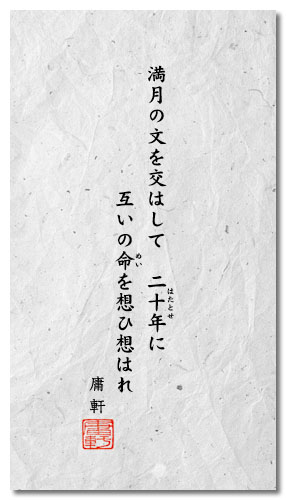 満月の文を交はして　二十年に
はたとせ
互いの命を想ひ想はれ
めい
庸軒
庸軒